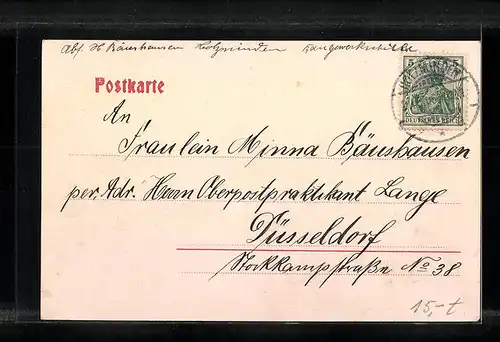 Abs. H Bäushausen Holzminden Baugewerkschule
Postkarte
5 5
DEUTSCHES REICH
An
Fräulein Minna Bäushausen
per. Adr. Herrn Oberpostpraktikant Lange
Düsseldorf
Stockkampstraße No 38
15,-t